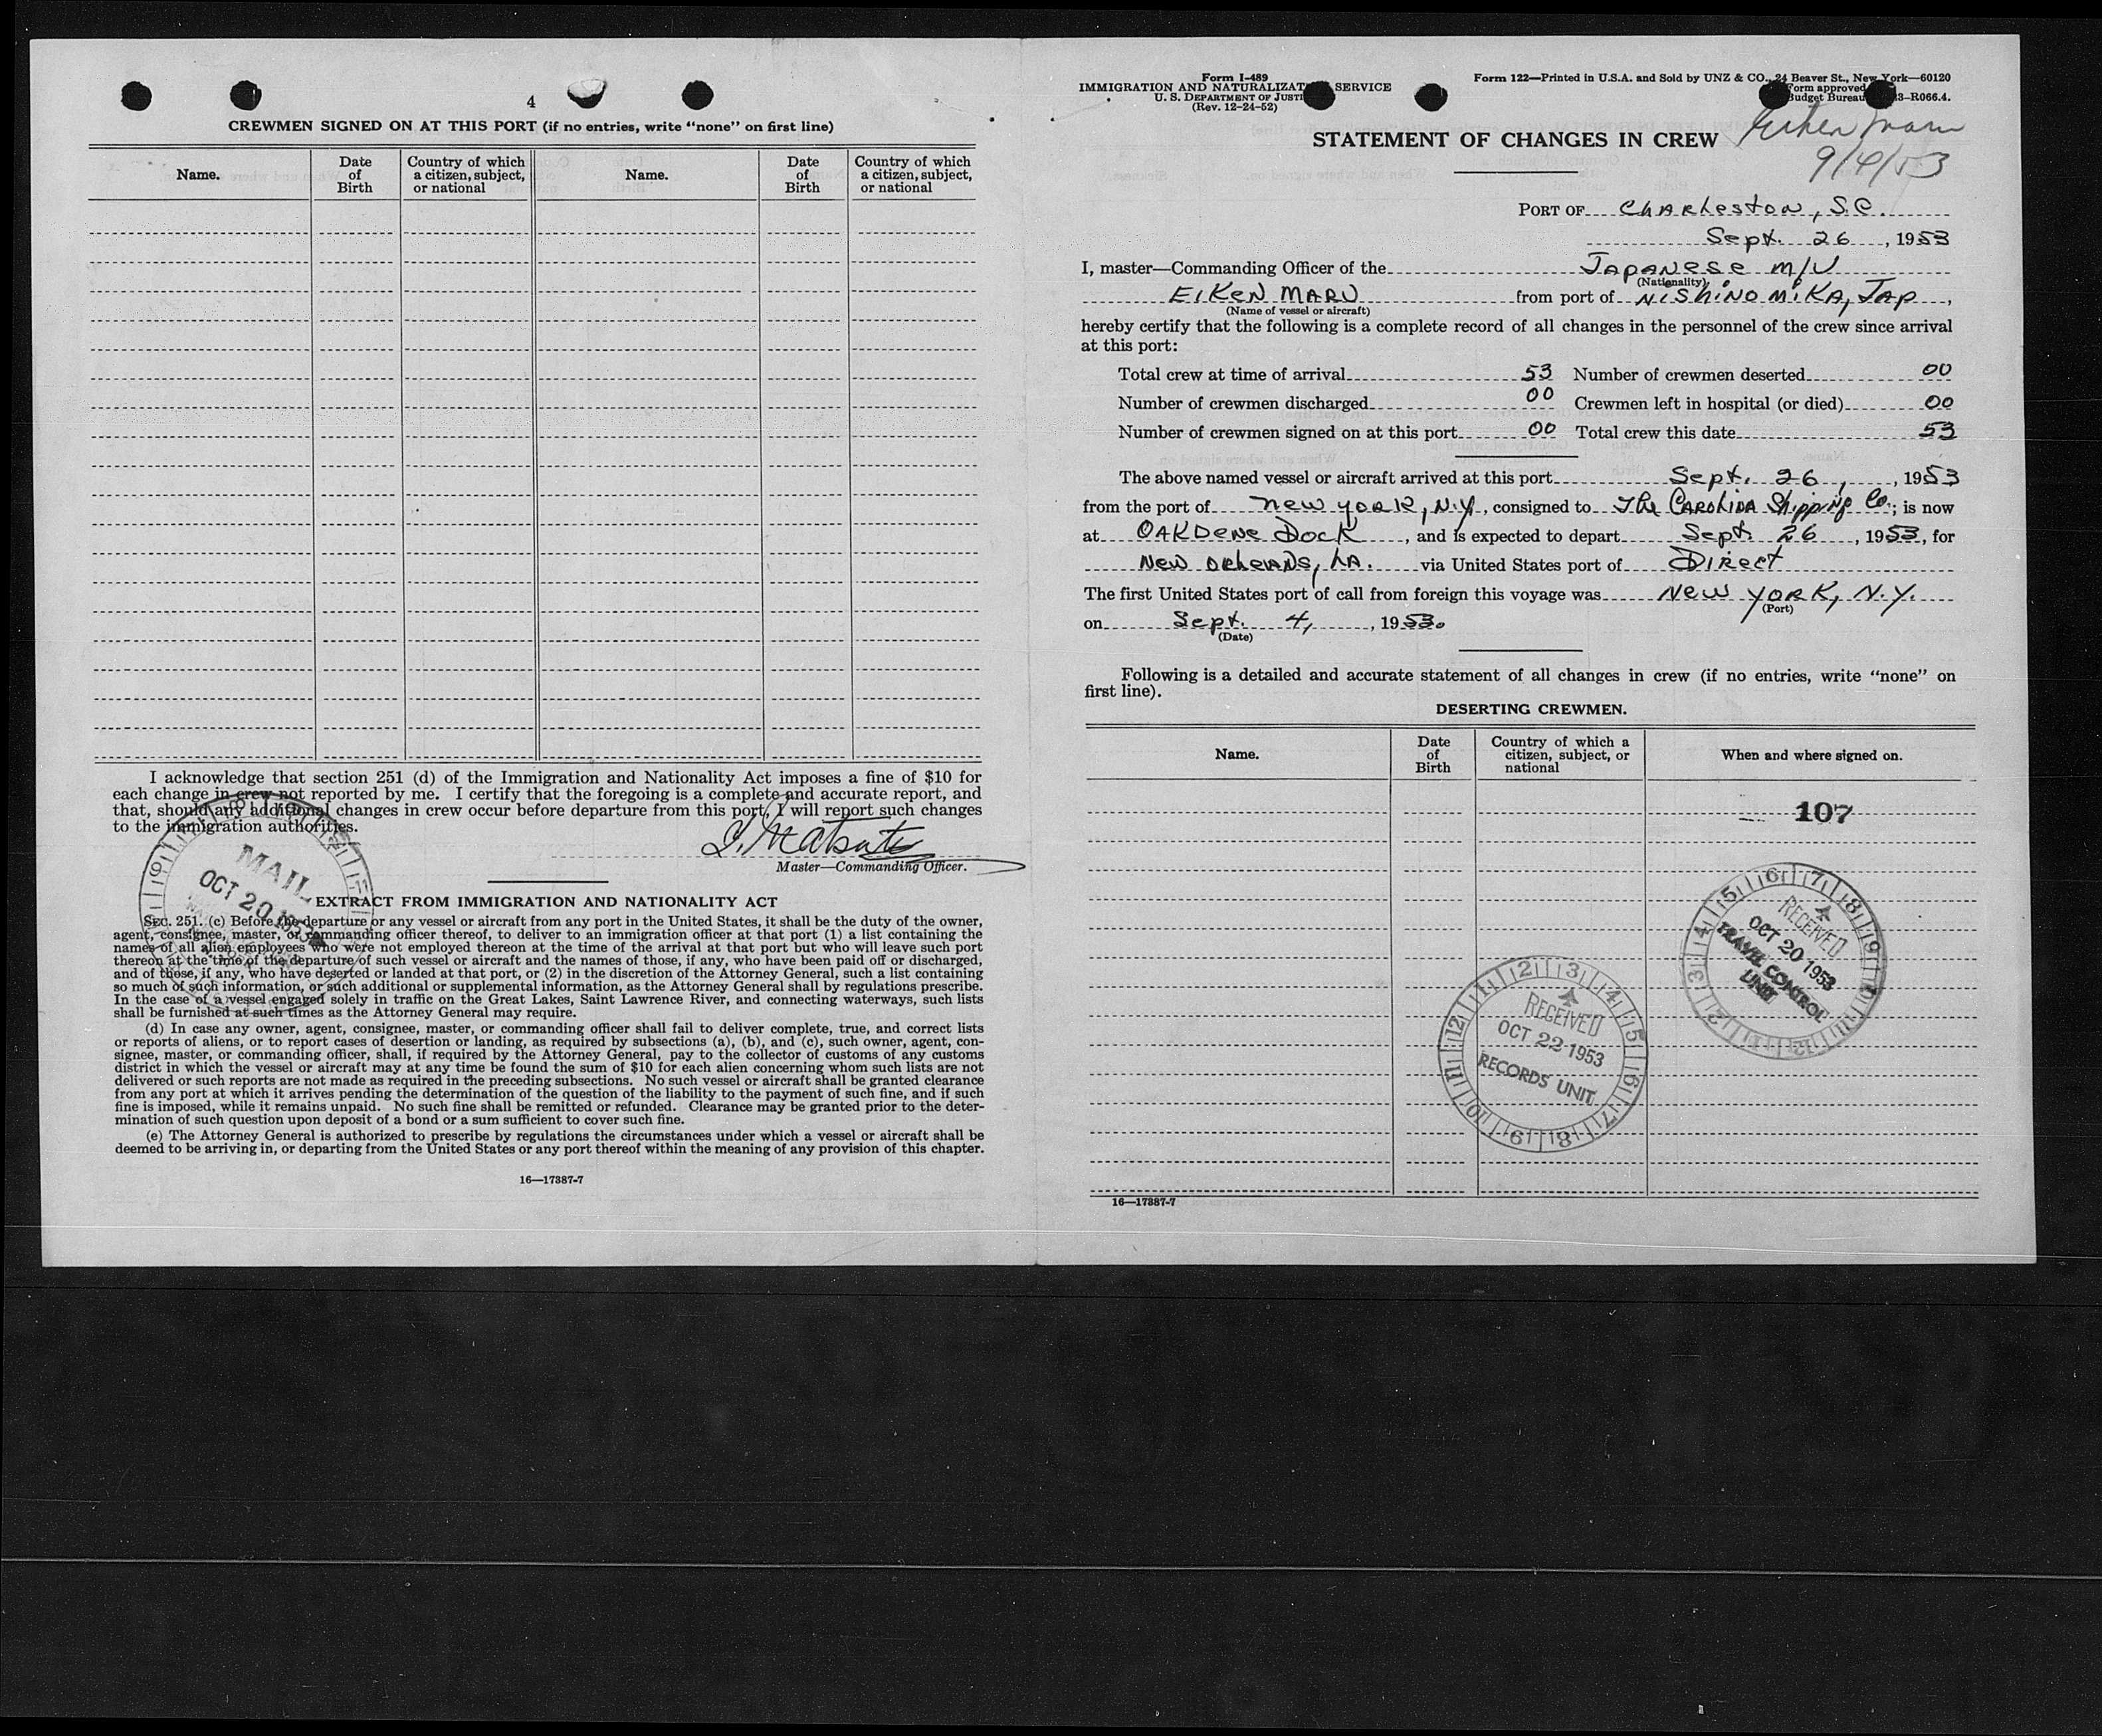 4
CREWMEN SIGNED ON AT THIS PORT (if no entries, write “none” on first line)
Name.
Date of Birth
Country of which a citizen, subject, or national
Name.
Date of Birth
Country of which a citizen, subject, or national
I acknowledge that section 251 (d) of the Immigration and Nationality Act imposes a fine of $10 for
each change in crew not reported by me. I certify that the foregoing is a complete and accurate report, and
that, should any additional changes in crew occur before departure from this port, I will report such changes
to the immigration authorities.
Master—Commanding Officer.
MAIL
OCT 20 1953
EXTRACT FROM IMMIGRATION AND NATIONALITY ACT
SEC. 251. (c) Before the departure or any vessel or aircraft from any port in the United States, it shall be the duty of the owner,
agent, consignee, master, or commanding officer thereof, to deliver to an immigration officer at that port (1) a list containing the
names of all alien employees who were not employed thereon at the time of the arrival at that port but who will leave such port
thereon at the time of the departure of such vessel or aircraft and the names of those, if any, who have been paid off or discharged,
and of those, if any, who have deserted or landed at that port, or (2) in the discretion of the Attorney General, such a list containing
so much of such information, or such additional or supplemental information, as the Attorney General shall by regulations prescribe.
In the case of a vessel engaged solely in traffic on the Great Lakes, Saint Lawrence River, and connecting waterways, such lists
shall be furnished at such times as the Attorney General may require.
(d) In case any owner, agent, consignee, master, or commanding officer shall fail to deliver complete, true, and correct lists
or reports of aliens, or to report cases of desertion or landing, as required by subsections (a), (b), and (c), such owner, agent, con-
signee, master, or commanding officer, shall, if required by the Attorney General, pay to the collector of customs of any customs
district in which the vessel or aircraft may at any time be found the sum of $10 for each alien concerning whom such lists are not
delivered or such reports are not made as required in the preceding subsections. No such vessel or aircraft shall be granted clearance
from any port at which it arrives pending the determination of the question of the liability to the payment of such fine, and if such
fine is imposed, while it remains unpaid. No such fine shall be remitted or refunded. Clearance may be granted prior to the deter-
mination of such question upon deposit of a bond or a sum sufficient to cover such fine.
(e) The Attorney General is authorized to prescribe by regulations the circumstances under which a vessel or aircraft shall be
deemed to be arriving in, or departing from the United States or any port thereof within the meaning of any provision of this chapter.
16—17387-7
Form I-489
IMMIGRATION AND NATURALIZAT SERVICE
U. S. DEPARTMENT OF JUSTI
(Rev. 12-24-52)
Form 122—Printed in U.S.A. and Sold by UNZ & CO., 24 Beaver St., New York—60120
Form approved
Budget Bureau 3-R066.4.
STATEMENT OF CHANGES IN CREW
9/4/53
PORT OF Charleston, S.C.
Sept. 26, 1953
I, master—Commanding Officer of the Japanese M/V
(Nationality)
EIKEN MARU from port of NISHINOMIKA, JAP,
(Name of vessel or aircraft)
hereby certify that the following is a complete record of all changes in the personnel of the crew since arrival
at this port:
Total crew at time of arrival 53 Number of crewmen deserted 00
Number of crewmen discharged 00 Crewmen left in hospital (or died) 00
Number of crewmen signed on at this port 00 Total crew this date 53
The above named vessel or aircraft arrived at this port Sept. 26, 1953
from the port of New York, N.Y., consigned to The Carolina Shipping Co.; is now
at Oakdene Dock, and is expected to depart Sept. 26, 1953, for
New Orleans, La. via United States port of Direct
The first United States port of call from foreign this voyage was New York, N.Y.
(Port)
on Sept. 4, 1953.
(Date)
Following is a detailed and accurate statement of all changes in crew (if no entries, write “none” on
first line).
DESERTING CREWMEN.
Name.
Date of Birth
Country of which a citizen, subject, or national
When and where signed on.
107
RECEIVED
OCT 20 1953
TRAVEL CONTROL
UNIT
RECEIVED
OCT 22 1953
RECORDS UNIT
16—17387-7